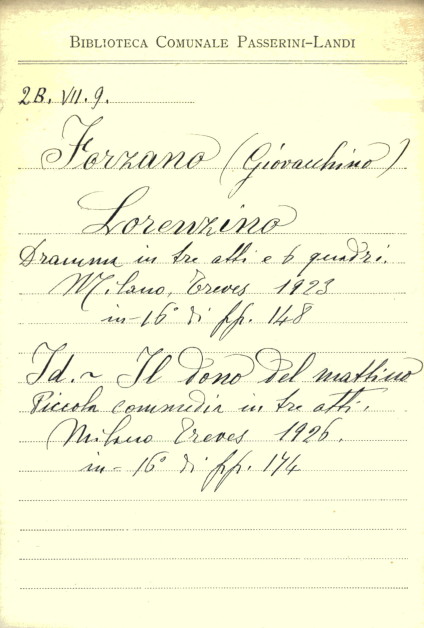 BIBLIOTECA COMUNALE PASSERINI-LANDI
2B. VII. 9.
Forzano (Giovacchino)
Lorenzino
Dramma in tre atti e 6 quadri.
Milano, Treves 1923
in-16° di pp. 148
Id. ~ Il dono del mattino
Piccola commedia in tre atti.
Milano Treves 1926.
in-16° di pp. 174